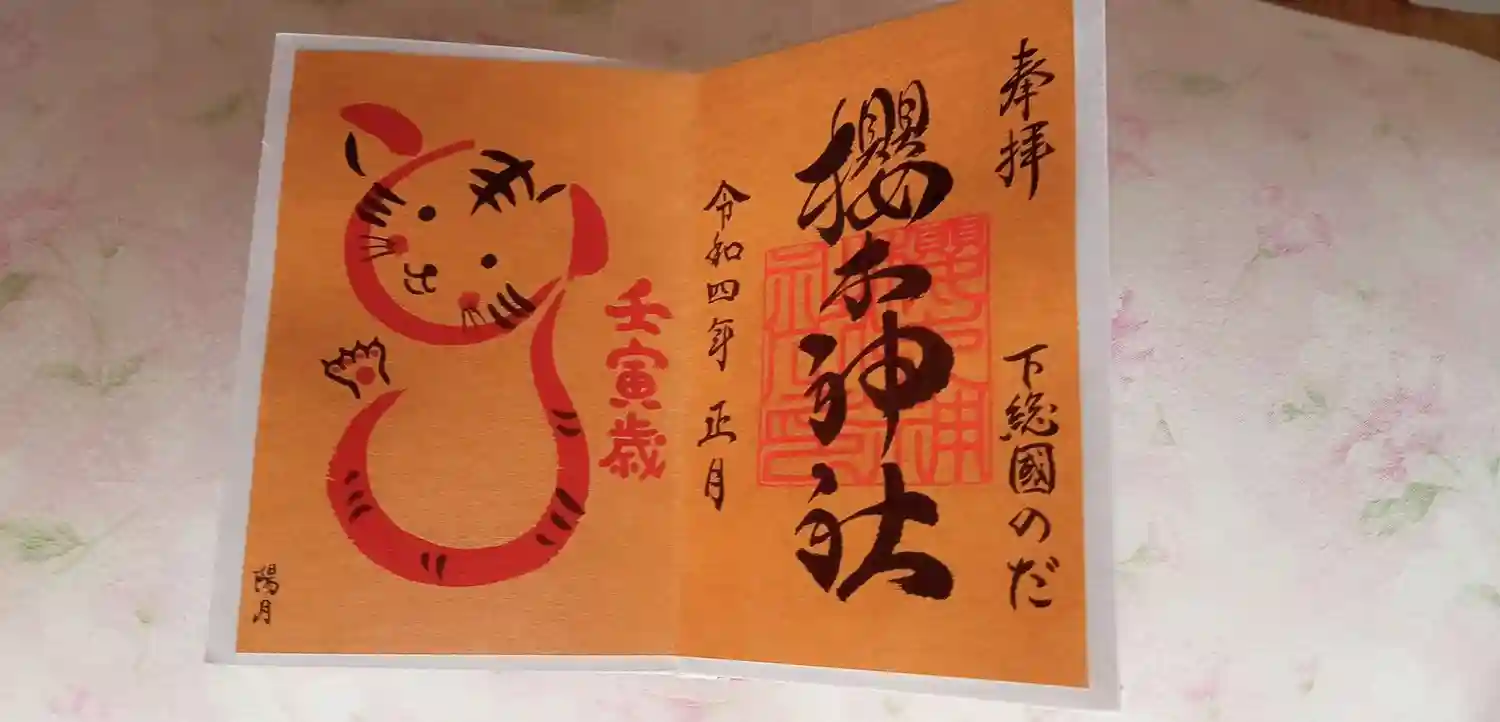 奉拝
下総國のだ
櫻木神社
令和四年 正月
壬寅歳
陽月